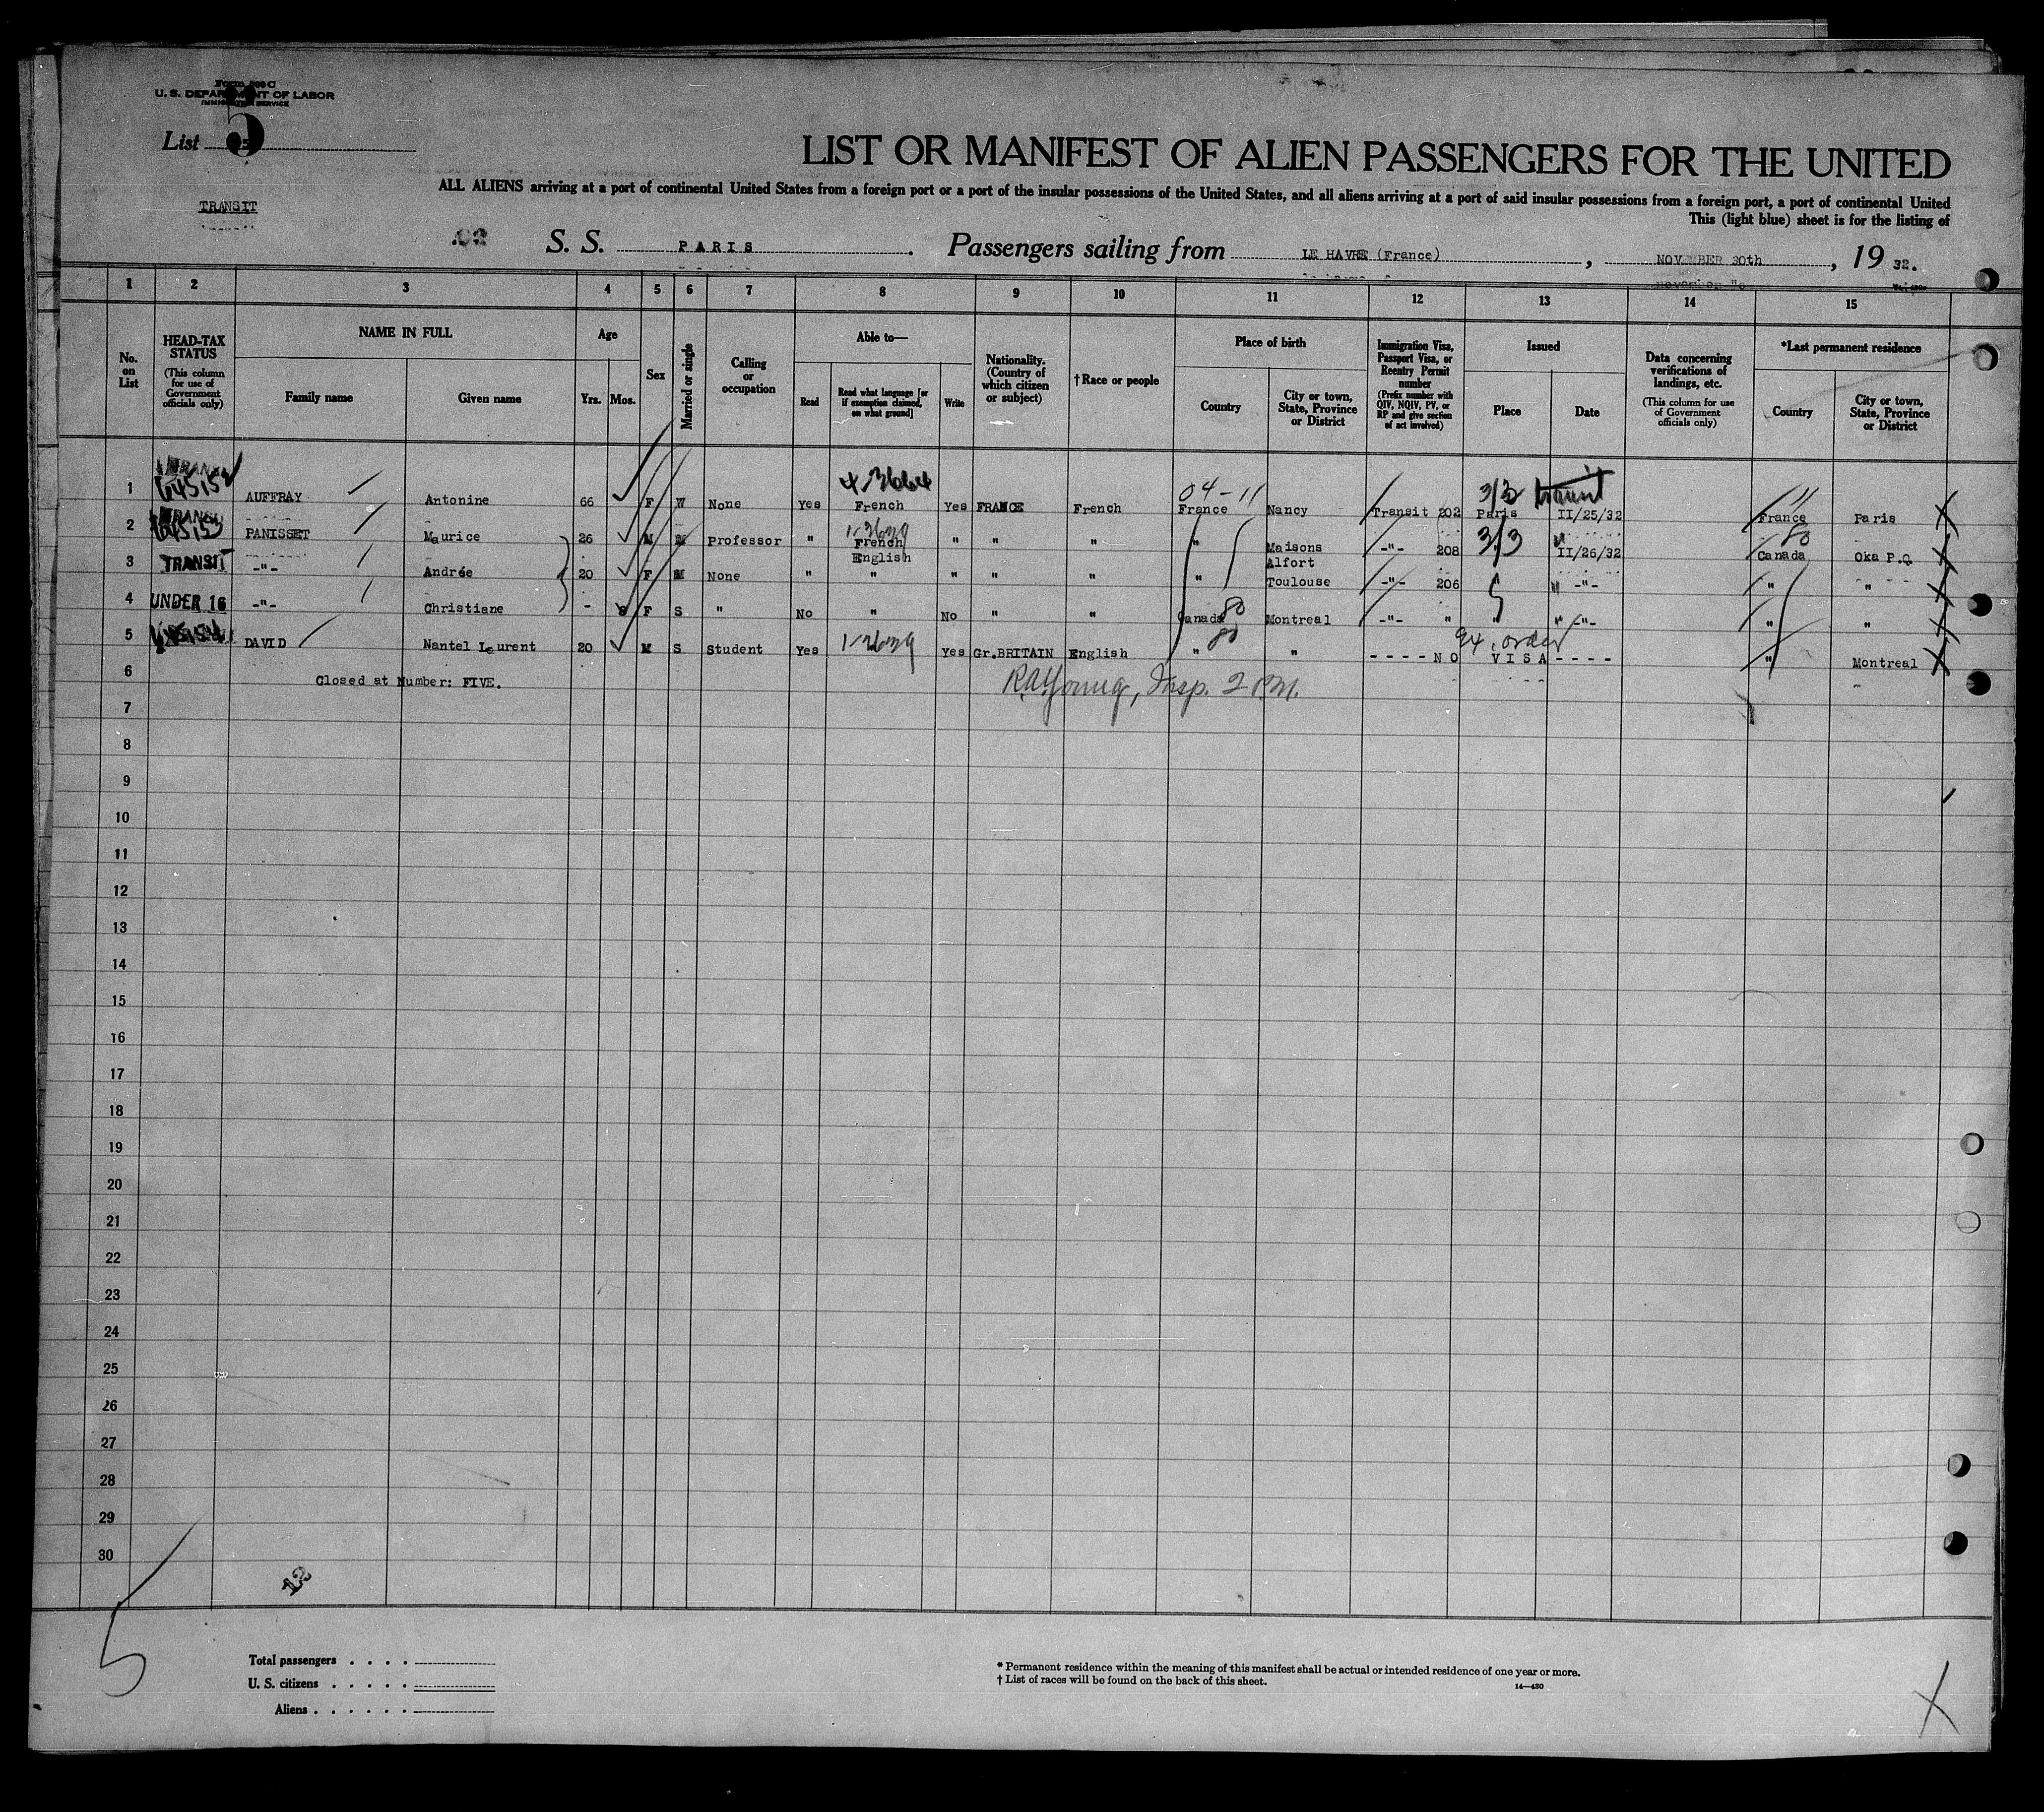 Form 500 C
U. S. DEPARTMENT OF LABOR
IMMIGRATION SERVICE
List 5
LIST OR MANIFEST OF ALIEN PASSENGERS FOR THE UNITED
ALL ALIENS arriving at a port of continental United States from a foreign port or a port of the insular possessions of the United States, and all aliens arriving at a port of said insular possessions from a foreign port, a port of continental United
This (light blue) sheet is for the listing of
TRANSIT
S. S. PARIS. Passengers sailing from LE HAVRE (France), NOVEMBER 30th, 19 32.
1 2 3 4 5 6 7 8 9 10 11 12 13 14 15
No. on List
HEAD-TAX STATUS
(This column for use of Government officials only)
NAME IN FULL
Family name
Given name
Age
Yrs. Mos.
Sex
Married or single
Calling or occupation
Able to—
Read
Read what language [or if exemption claimed, on what ground]
Write
Nationality. (Country of which citizen or subject)
†Race or people
Place of birth
Country
City or town, State, Province or District
Immigration Visa, Passport Visa, or Reentry Permit number
(Prefix number with QIV, NQIV, PV, or RP and give section of act involved)
Issued
Place
Date
Data concerning verifications of landings, etc.
(This column for use of Government officials only)
*Last permanent residence
Country
City or town, State, Province or District
04-11 3/3 transit 11
1 AUFFRAY Antonine 66 F W None Yes French Yes FRANCE French France Nancy Transit 202 Paris II/25/32 France Paris
2 PANISSET Maurice 26 M M Professor " French English " " " " Maisons Alfort -"- 208 3/3 " II/26/32 80 Canada Oka P.Q.
3 TRANSIT -"- Andrée 20 F M None " " " " " " Toulouse -"- 206 " -"- " "
4 UNDER 16 -"- Christiane - 8 F S " No " No " " Canada 80 Montreal -"- " " " -"- " "
5 DAVID Nantel Laurent 20 M S Student Yes 1-3629 Yes Gr.BRITAIN English " 80 " ----NO VISA---- Ex. order " Montreal
6 Closed at Number: FIVE. R A Young, Insp. 2 P.M.
7
8
9
10
11
12
13
14
15
16
17
18
19
20
21
22
23
24
25
26
27
28
29
30
12
5
Total passengers . . . .
U. S. citizens . . . . .
Aliens . . . . . .
* Permanent residence within the meaning of this manifest shall be actual or intended residence of one year or more.
† List of races will be found on the back of this sheet.
14—430
X